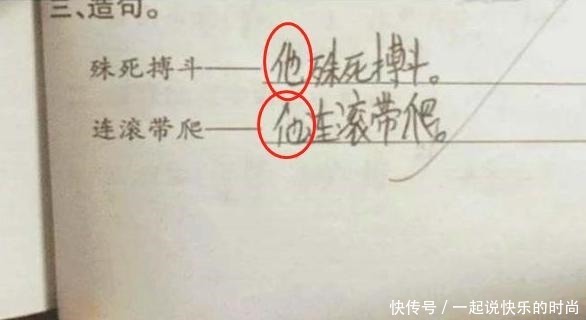 三、造句。
殊死搏斗——他殊死搏斗。
连滚带爬——他连滚带爬。
快传号／一起说快乐的时尚